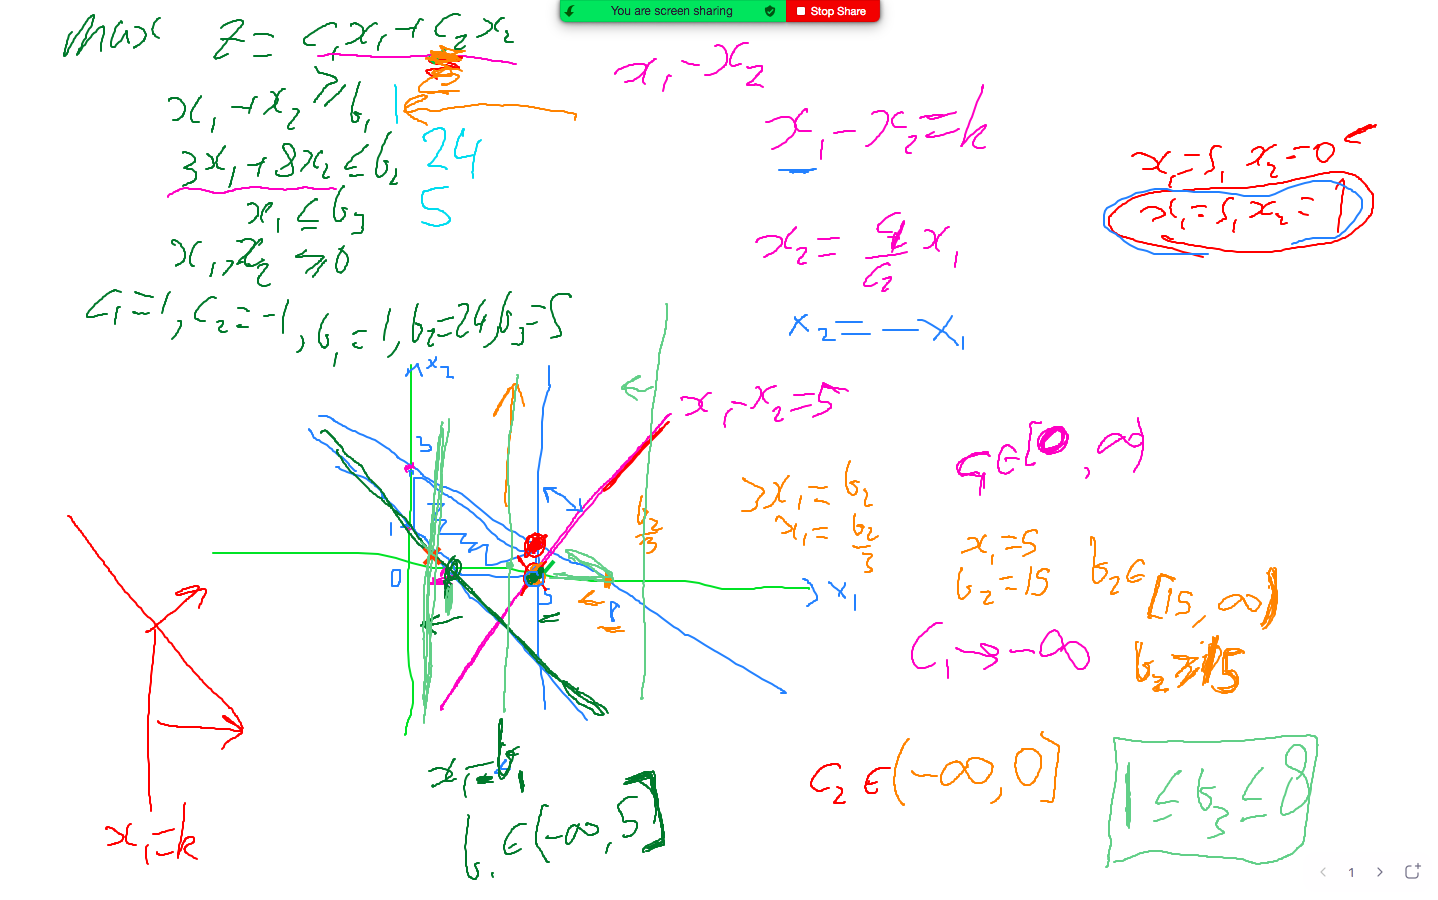 You are screen sharing
Stop Share
Max Z = C₁x₁ + C₂x₂
x₁ + x₂ ≥ b₁ 1
3x₁ + 8x₂ ≤ b₂ 24
x₁ ≤ b₃ 5
x₁, x₂ ≥ 0
C₁ = 1, C₂ = -1, b₁ = 1, b₂ = 24, b₃ = 5
x₁ - x₂
x₁ - x₂ = k
x₁ = 5, x₂ = 0
x₁ = 5, x₂ = 1
x₂ = C₁/C₂ x₁
x₂ = -x₁
x₂
x₁ - x₂ = 5
3
1
0
5
8
x₁
b₂/3
3x₁ = b₂
x₁ = b₂/3
C₁ ∈ [0, ∞)
x₁ = 5
b₂ = 15
b₂ ∈ [15, ∞)
C₁ → -∞
b₂ ≥ 15
x₁ = k
x₁ = b₁
b₁ ∈ (-∞, 5]
C₂ ∈ (-∞, 0]
1 ≤ b₃ ≤ 8
1